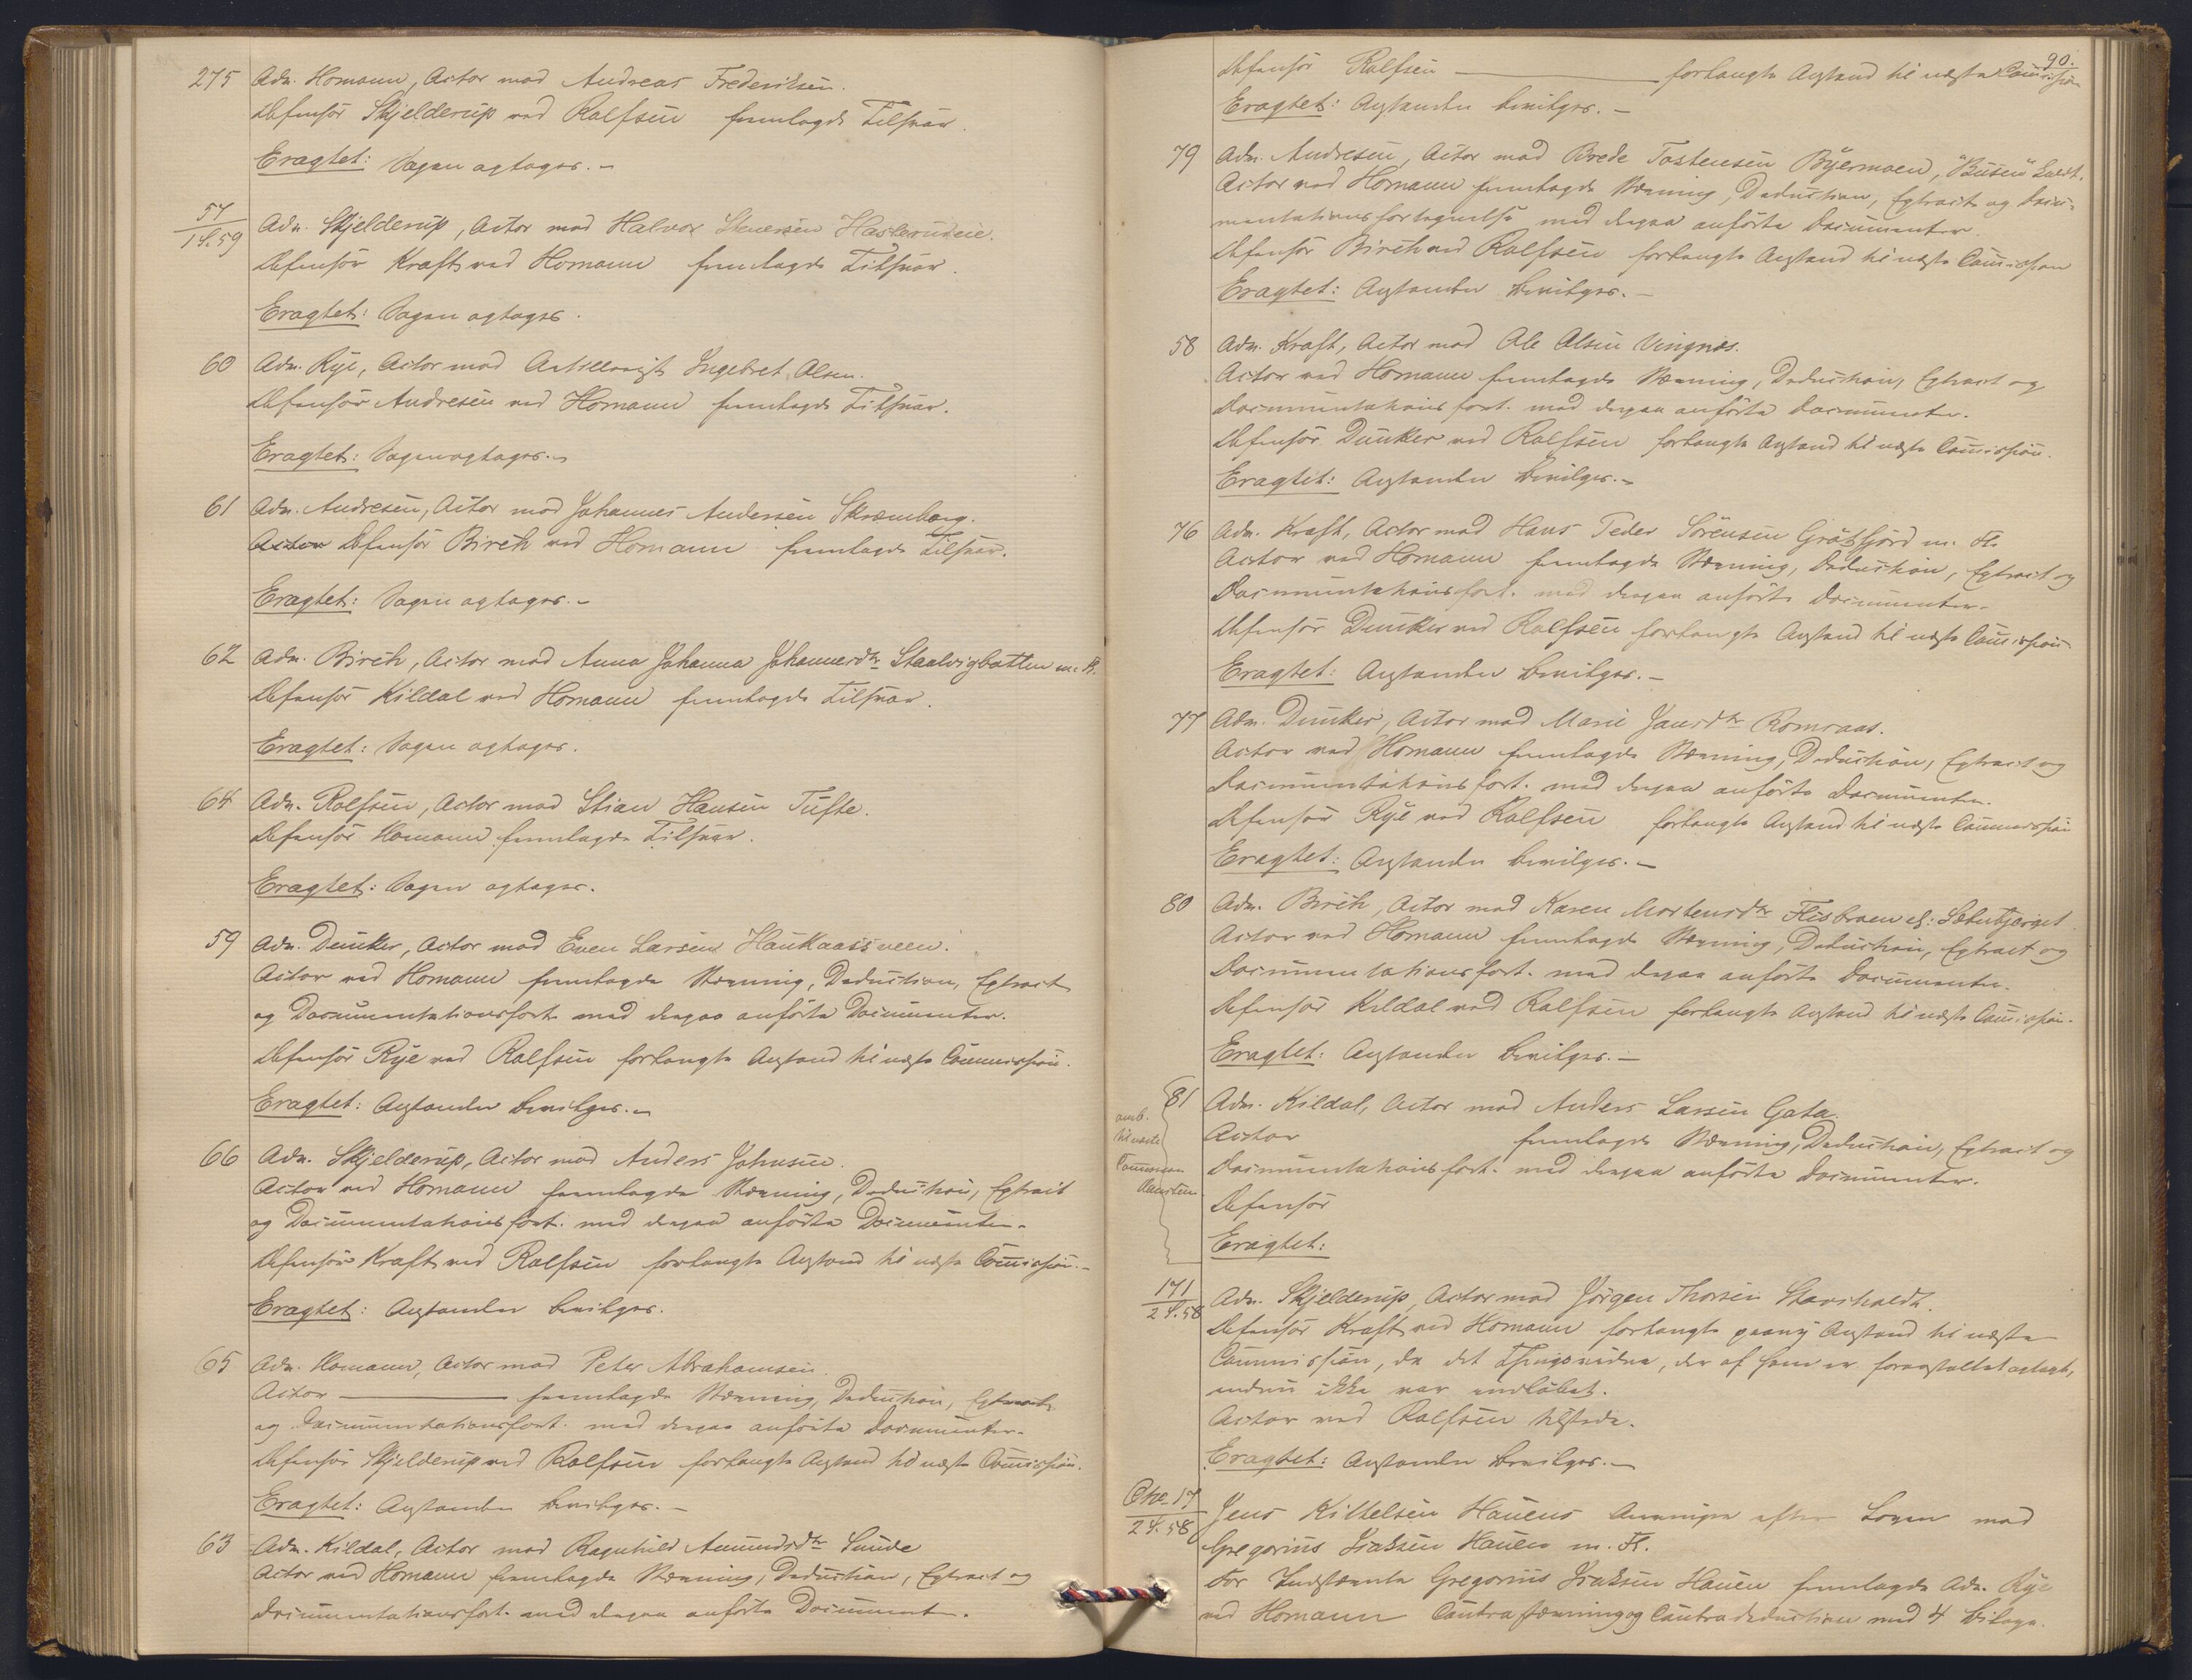 275 Adv. Homann, Actor mod Andreas Frederiksen.
Defensor Skjelderup ved Rolfsen fremlagde Tilsvar.
Eragtet: Sagen optages. –
57
1 S. 59 Adv. Skjelderup, Actor mod Halvor Stenersen Haslerudeie.
Defensor Kraft ved Homann fremlagde Tilsvar.
Eragtet: Sagen optages.
60 Adv. Rye, Actor mod Ingebret Olsen.
Defensor Andresen ved Homann fremlagde Tilsvar.
Eragtet: Sagen optages. –
61 Adv. Andresen, Actor mod Johannes Andersen Skramberg.
Actor Defensor Birch ved Homann fremlagde Tilsvar.
Eragtet: Sagen optages. –
62 Adv. Birch, Actor mod Anna Johanna Johannesdtr Staalvigbotten m. Fl.
Defensor Kildal ved Homann fremlagde Tilsvar.
Eragtet: Sagen optages.
64 Adv. Rolfsen, Actor mod Stian Hansen Tufte.
Defensor Homann fremlagde Tilsvar.
Eragtet: Sagen optages.
59 Adv. Dunker, Actor mod Even Larsen Haukaassveen.
Actor ved Homann fremlagde Stævning, Deduction, Extract
og Documentationsfort. med derpaa anførte Documenter.
Defensor Rye ved Rolfsen forlangte Anstand til næste Commission.
Eragtet: Anstanden bevilges. –
66 Adv. Skjelderup, Actor mod Anders Johnsen.
Actor ved Homann fremlagde Stævning, Deduction, Extract
og Documentationsfort. med derpaa anførte Documenter.
Defensor Kraft ved Rolfsen forlangte Anstand til næste Comission. –
Eragtet: Anstanden bevilges.
65 Adv. Homann, Actor mod Peter Abrahamsen.
Actor — fremlagde Stævning, Deduction, Extract
og Documentationsfort. med derpaa anførte Documenter.
Defensor Skjelderup ved Rolfsen forlangte Anstand til næste Comission.
Eragtet: Anstanden bevilges. –
63 Adv. Kildal, Actor mod Ragnhild Amundsdtr Sunde
Actor ved Homann fremlagde Stævning, Deduction, Extract og
Documentationsfort. med derpaa anførte Document.
90.
Defensor Rolfsen — forlangte Anstand til næste Comission
Eragtet: Anstanden bevilges. –
79 Adv. Andresen, Actor mod Brede Tostensen Byermoen, "Busen" kaldt.
Actor ved Homann fremlagde Stævning, Deduction, Extract og Docu-
mentationsfortegnelse med derpaa anførte Documenter.
Defensor Birch ved Rolfsen forlangte Anstand til næste Comission
Eragtet: Anstanden bevilges. –
58 Adv. Kraft, Actor mod Ole Olsen Vingnæs.
Actor ved Homann fremlagde Stævning, Deduction, Extract og
Documentationsfort. med derpaa anførte Documenter.
Defensor Dunker ved Rolfsen forlangte Anstand til næste Comission.
Eragtet: Anstanden bevilges. –
76 Adv. Kraft, Actor mod Hans Peder Sørensen Grøtfjord m. Fl.
Actor ved Homann fremlagde Stævning, Deduction, Extract og
Documentationsfort. med derpaa anførte Documenter.
Defensor Dunker ved Rolfsen forlangte Anstand til næste Comission
Eragtet: Anstanden bevilges. –
77 Adv. Dunker, Actor mod Marie Jansdtr Romsaas.
Actor ved Homann fremlagde Stævning, Deduction, Extract og
Documentationsfort. med derpaa anførte Documenter.
Defensor Rye ved Rolfsen forlangte Anstand til næste Commission
Eragtet: Anstanden bevilges. –
80 Adv. Birch, Actor mod Karen Mortensdtr Flisbraen
Actor ved Homann fremlagde Stævning, Deduction, Extract og
Documentationsfort. med derpaa anførte Documenter.
Defensor Kildal ved Rolfsen forlangte Anstand til næste Comission.
Eragtet: Anstanden bevilges. –
81 Adv. Kildal, Actor mod Anders Larsen Gata.
Actor fremlagde Stævning, Deduction, Extract og
Documentationsfort. med derpaa anførte Documenter.
Defensor
Eragtet:
til næste
171
2 S. 58 Adv. Skjelderup, Actor mod Jørgen Thorsen Stavsholdt.
Defensor Kraft ved Homann forlangte paany Anstand til næste
Commission, da det Thingsvidne, der af ham er foranstaltet optaget,
endnu ikke var indløbet.
Actor ved Rolfsen tilstede.
Eragtet: Anstanden bevilges. –
Ctr. 17
2 S. 58 Jens Kittelsen Hauens efter Loven mod
Gregorius Isaksen Hauen m. Fl.
For Indstævnte Gregorius Isaksen Hauen fremlagde Adv. Rye
ved Homann Contrastævning og Contradeduction med 4 Bilage.